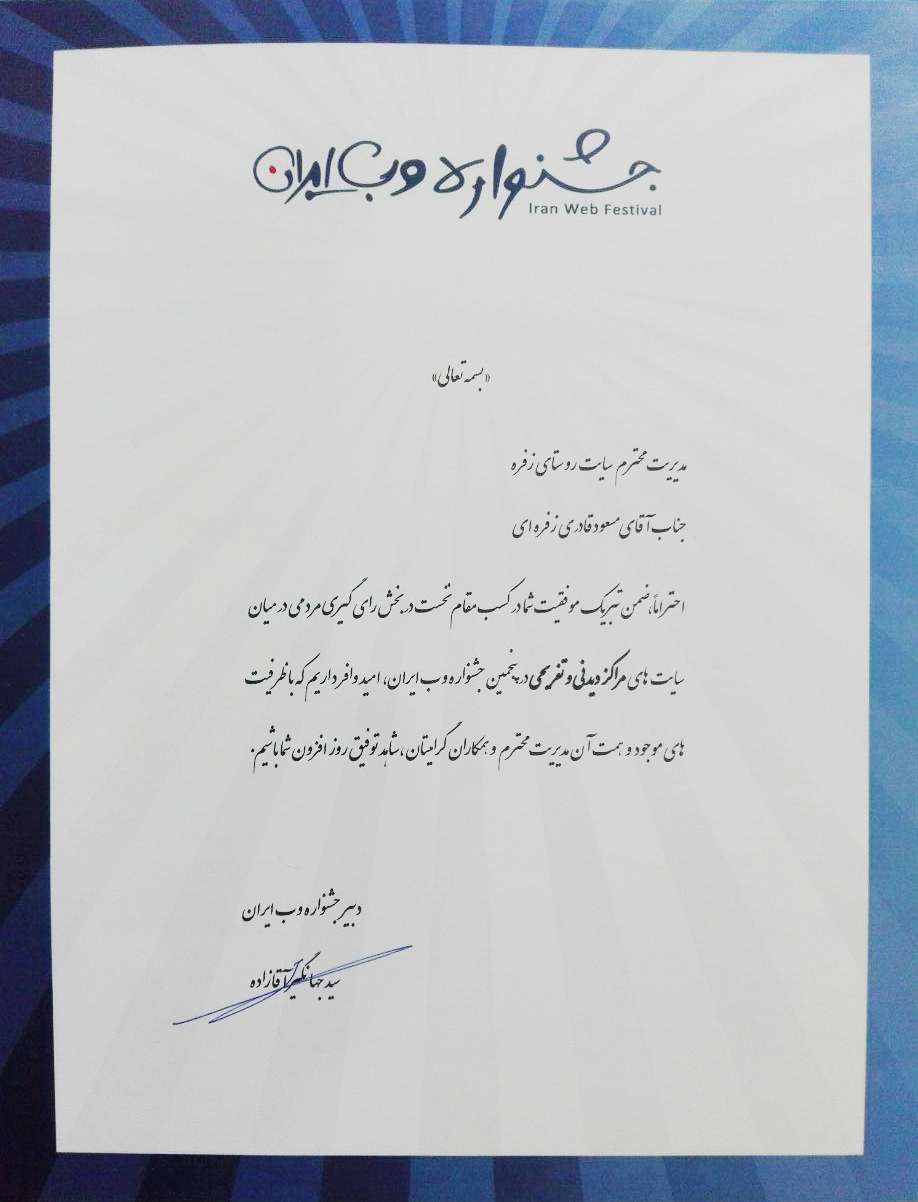 جشنواره وب ایران
Iran Web Festival
«بسمه تعالی»
مدیریت محترم سایت روستای زفره
جناب آقای مسعود قادری زفره ای
احتراماً، ضمن تبریک موفقیت شما در کسب مقام نخست در بخش رای گیری مردمی در میان
سایت های مراکز دیدنی و تفریحی در پنجمین جشنواره وب ایران، امید وافر داریم که با ظرفیت
های موجود و همت آن مدیریت محترم و همکاران گرامیتان، شاهد توفیق روز افزون شما باشیم.
دبیر جشنواره وب ایران
سید جهانگیر آقازاده